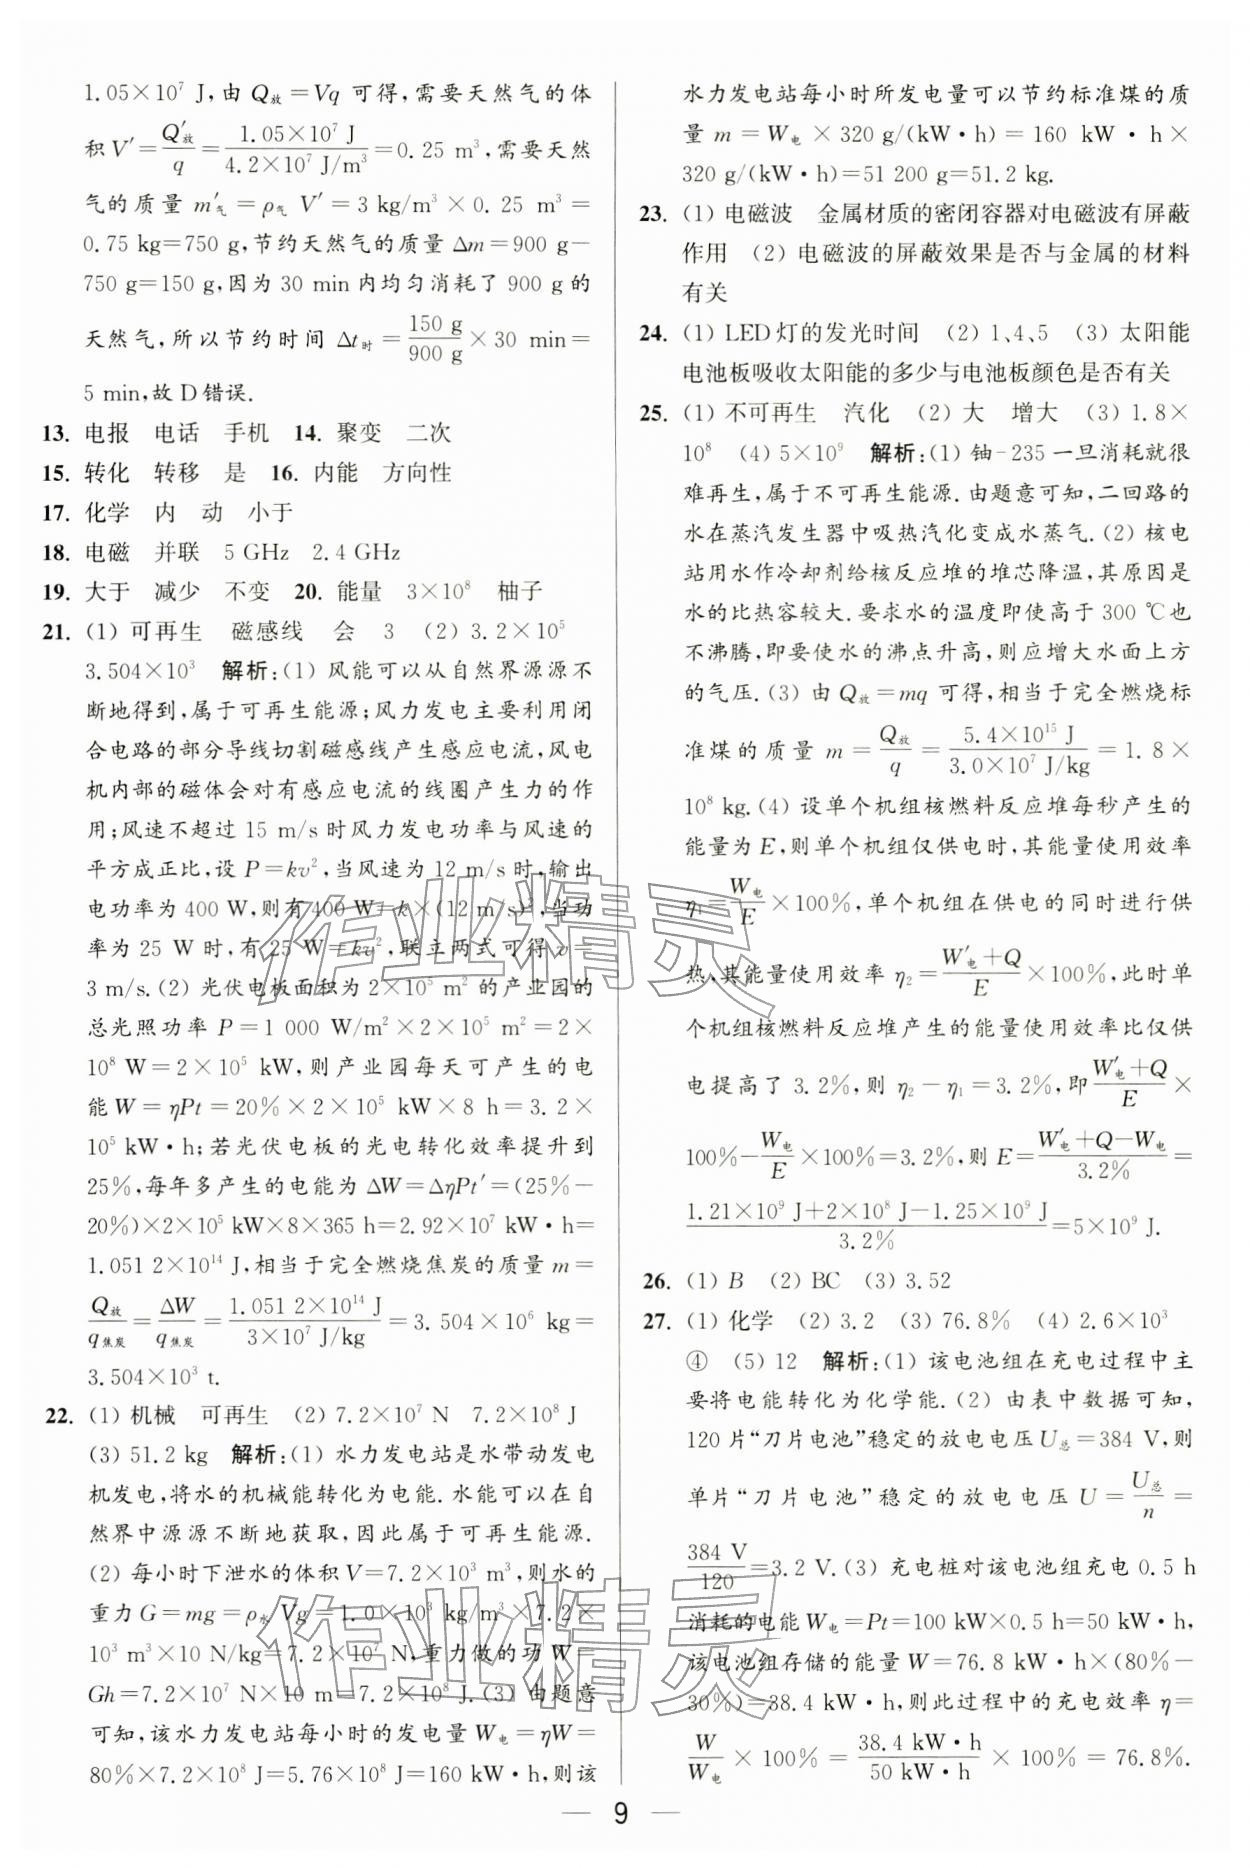 1.05×10⁷ J,由 Q放=Vq 可得,需要天然气的体
积 V′=Q′放/q=1.05×10⁷ J/4.2×10⁷ J/m³=0.25 m³,需要天然
气的质量 m′气=ρ气 V′=3 kg/m³×0.25 m³=
0.75 kg=750 g,节约天然气的质量 Δm=900 g−
750 g=150 g,因为 30 min内均匀消耗了 900 g的
天然气,所以节约时间 Δt时=150 g/900 g×30 min=
5 min,故 D 错误.
13. 电报 电话 手机 14. 聚变 二次
15. 转化 转移 是 16. 内能 方向性
17. 化学 内 动 小于
18. 电磁 并联 5 GHz 2.4 GHz
19. 大于 减少 不变 20. 能量 3×10⁸ 柚子
21. (1) 可再生 磁感线 会 3 (2) 3.2×10⁵
3.504×10³ 解析:(1) 风能可以从自然界源源不
断地得到,属于可再生能源;风力发电主要利用闭
合电路的部分导线切割磁感线产生感应电流,风电
机内部的磁体会对有感应电流的线圈产生力的作
用;风速不超过 15 m/s 时风力发电功率与风速的
平方成正比,设 P=kv²,当风速为 12 m/s 时,输出
电功率为 400 W,则有 400 W=k×(12 m/s)²,当功
率为 25 W 时,有 25 W=kv²,联立两式可得 v=
3 m/s.(2) 光伏电板面积为 2×10⁵ m² 的产业园的
总光照功率 P=1 000 W/m²×2×10⁵ m²=2×
10⁸ W=2×10⁵ kW,则产业园每天可产生的电
能 W=ηPt=20%×2×10⁵ kW×8 h=3.2×
10⁵ kW·h;若光伏电板的光电转化效率提升到
25%,每年多产生的电能为 ΔW=ΔηPt′=(25%−
20%)×2×10⁵ kW×8×365 h=2.92×10⁷ kW·h=
1.051 2×10¹⁴ J,相当于完全燃烧焦炭的质量 m=
Q放/q焦炭=ΔW/q焦炭=1.051 2×10¹⁴ J/3×10⁷ J/kg=3.504×10⁶ kg=
3.504×10³ t.
22. (1) 机械 可再生 (2) 7.2×10⁷ N 7.2×10⁸ J
(3) 51.2 kg 解析:(1) 水力发电站是水带动发电
机发电,将水的机械能转化为电能.水能可以在自
然界中源源不断地获取,因此属于可再生能源.
(2) 每小时下泄水的体积 V=7.2×10³ m³,则水的
重力 G=mg=ρ水 Vg=1.0×10³ kg/m³×7.2×
10³ m³×10 N/kg=7.2×10⁷ N,重力做的功 W=
Gh=7.2×10⁷ N×10 m=7.2×10⁸ J.(3) 由题意
可知,该水力发电站每小时的发电量 W电=ηW=
80%×7.2×10⁸ J=5.76×10⁸ J=160 kW·h,则该
水力发电站每小时所发电量可以节约标准煤的质
量 m=W电×320 g/(kW·h)=160 kW·h×
320 g/(kW·h)=51 200 g=51.2 kg.
23. (1) 电磁波 金属材质的密闭容器对电磁波有屏蔽
作用 (2) 电磁波的屏蔽效果是否与金属的材料
有关
24. (1) LED 灯的发光时间 (2) 1、4、5 (3) 太阳能
电池板吸收太阳能的多少与电池板颜色是否有关
25. (1) 不可再生 汽化 (2) 大 增大 (3) 1.8×
10⁸ (4) 5×10⁹ 解析:(1) 铀-235一旦消耗就很
难再生,属于不可再生能源.由题意可知,二回路的
水在蒸汽发生器中吸热汽化变成水蒸气.(2) 核电
站用水作冷却剂给核反应堆的堆芯降温,其原因是
水的比热容较大.要求水的温度即使高于 300 ℃也
不沸腾,即要使水的沸点升高,则应增大水面上方
的气压.(3) 由 Q放=mq 可得,相当于完全燃烧标
准煤的质量 m=Q放/q=5.4×10¹⁵ J/3.0×10⁷ J/kg=1.8×
10⁸ kg.(4) 设单个机组核燃料反应堆每秒产生的
能量为 E,则单个机组仅供电时,其能量使用效率
η₁=W电/E×100%,单个机组在供电的同时进行供
热,其能量使用效率 η₂=W′电+Q/E×100%,此时单
个机组核燃料反应堆产生的能量使用效率比仅供
电提高了 3.2%,则 η₂−η₁=3.2%,即W′电+Q/E×
100%−W电/E×100%=3.2%,则 E=W′电+Q−W电/3.2%=
1.21×10⁹ J+2×10⁸ J−1.25×10⁹ J/3.2%=5×10⁹ J.
26. (1) B (2) BC (3) 3.52
27. (1) 化学 (2) 3.2 (3) 76.8% (4) 2.6×10³
④ (5) 12 解析:(1) 该电池组在充电过程中主
要将电能转化为化学能.(2) 由表中数据可知,
120 片“刀片电池”稳定的放电电压 U总=384 V,则
单片“刀片电池”稳定的放电电压 U=U总/n=
384 V/120=3.2 V.(3) 充电桩对该电池组充电 0.5 h
消耗的电能 W电=Pt=100 kW×0.5 h=50 kW·h,
该电池组存储的能量 W=76.8 kW·h×(80%−
30%)=38.4 kW·h,则此过程中的充电效率 η=
W/W电×100%=38.4 kW·h/50 kW·h×100%=76.8%.
9
作业精灵
作业精灵